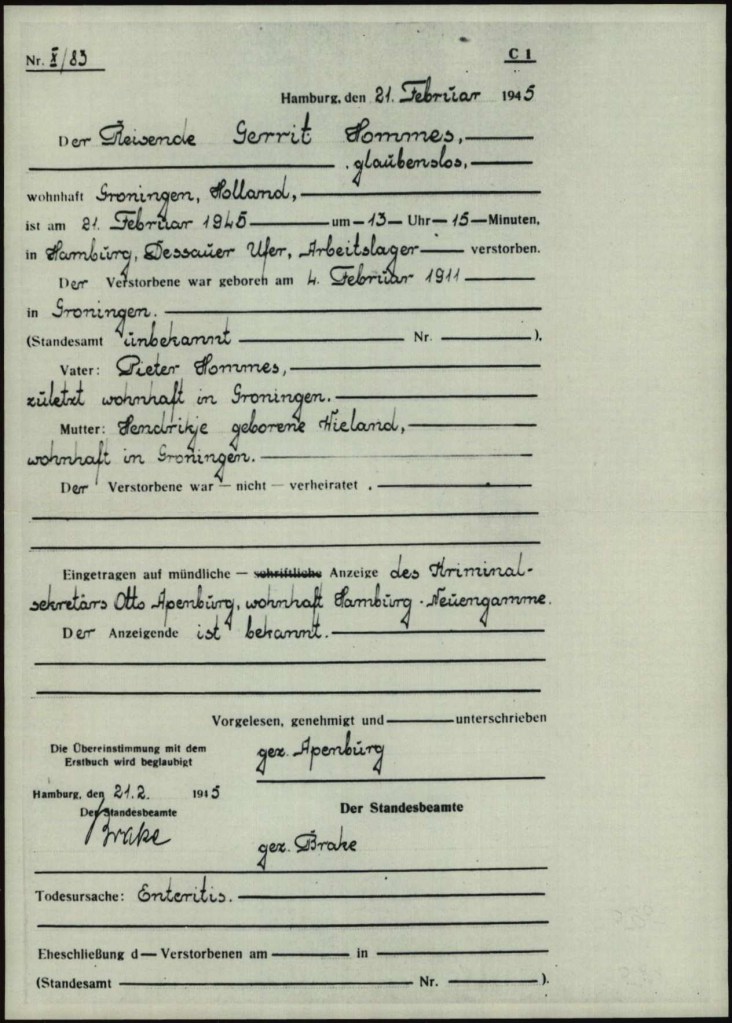 Nr. X/83
C 1
Hamburg, den 21. Februar 1945
Der Reisende Gerrit Hommes,
, glaubenslos,
wohnhaft Groningen, Holland,
ist am 21. Februar 1945 um 13 Uhr 15 Minuten,
in Hamburg, Dessauer Ufer, Arbeitslager verstorben.
Der Verstorbene war geboren am 4. Februar 1911
in Groningen.
(Standesamt unbekannt Nr. ).
Vater: Pieter Hommes,
zuletzt wohnhaft in Groningen.
Mutter: Hendrikje geborene Wieland,
wohnhaft in Groningen.
Der Verstorbene war — nicht — verheiratet.
Eingetragen auf mündliche — schriftliche Anzeige des Kriminal-
sekretärs Otto Apenburg, wohnhaft Hamburg-Neuengamme.
Der Anzeigende ist bekannt.
Vorgelesen, genehmigt und unterschrieben
Die Übereinstimmung mit dem
Erstbuch wird beglaubigt
gez. Apenburg
Hamburg, den 21.2. 1945
Der Standesbeamte
Brake
Der Standesbeamte
gez. Brake
Todesursache: Enteritis.
Eheschließung d— Verstorbenen am in
(Standesamt Nr. ).